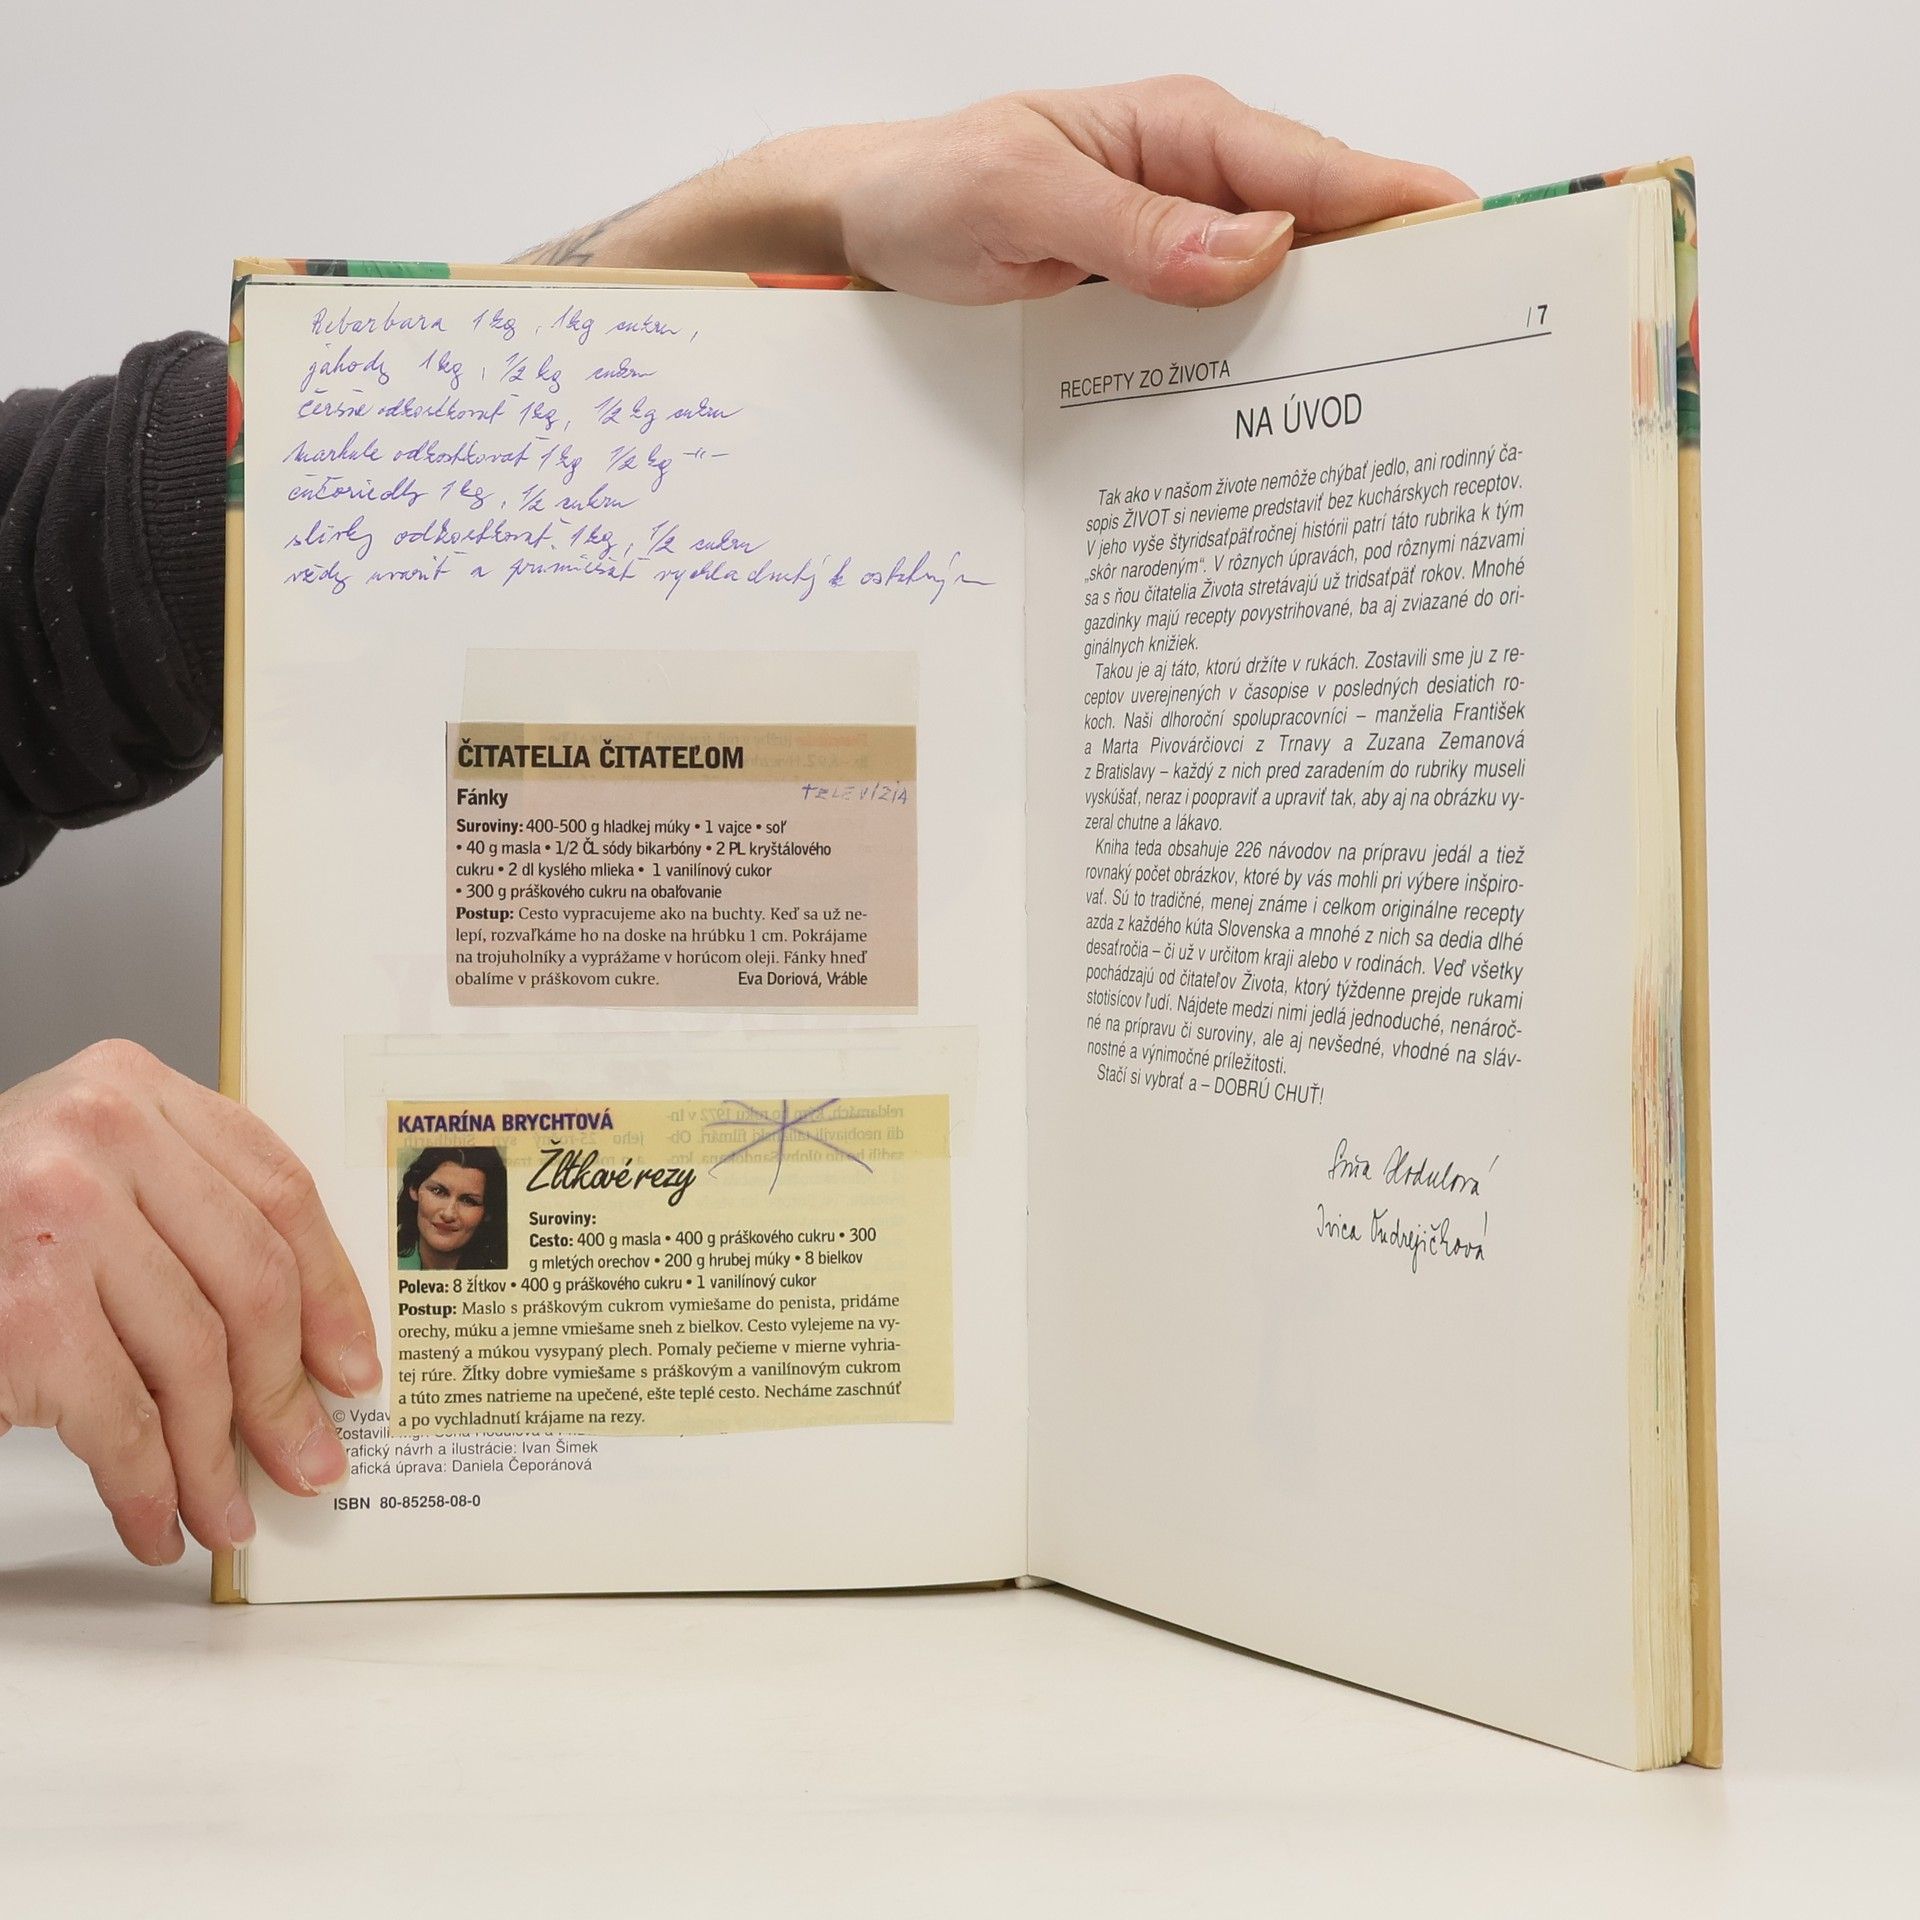 Rebarbara 1 kg, 1kg cukru,
jahody 1kg, 1/2 kg cukru
čerešne odkostkovať 1kg, 1/2 kg cukru
marhule odkostkovať 1kg 1/2 kg -"-
čučoriedky 1kg, 1/2 cukru
slivky odkostkovať 1kg, 1/2 cukru
vždy uvariť a primiešať k
ČITATELIA ČITATEĽOM
Fánky
TELEVÍZIA
Suroviny: 400-500 g hladkej múky • 1 vajce • soľ
• 40 g masla • 1/2 ČL sódy bikarbóny • 2 PL kryštálového
cukru • 2 dl kyslého mlieka • 1 vanilínový cukor
• 300 g práškového cukru na obaľovanie
Postup: Cesto vypracujeme ako na buchty. Keď sa už ne-
lepí, rozvaľkáme ho na doske na hrúbku 1 cm. Pokrájame
na trojuholníky a vyprážame v horúcom oleji. Fánky hneď
obalíme v práškovom cukre. Eva Doriová, Vráble
KATARÍNA BRYCHTOVÁ
Žĺtkové rezy
Suroviny:
Cesto: 400 g masla • 400 g práškového cukru • 300
g mletých orechov • 200 g hrubej múky • 8 bielkov
Poleva: 8 žĺtkov • 400 g práškového cukru • 1 vanilínový cukor
Postup: Maslo s práškovým cukrom vymiešame do penista, pridáme
orechy, múku a jemne vmiešame sneh z bielkov. Cesto vylejeme na vy-
mastený a múkou vysypaný plech. Pomaly pečieme v mierne vyhria-
tej rúre. Žĺtky dobre vymiešame s práškovým a vanilínovým cukrom
a túto zmes natrieme na upečené, ešte teplé cesto. Necháme zaschnúť
a po vychladnutí krájame na rezy.
© Vydav
Zostavili:
rafický návrh a ilustrácie: Ivan Šimek
afická úprava: Daniela Čeporánová
ISBN 80-85258-08-0
/ 7
RECEPTY ZO ŽIVOTA
NA ÚVOD
Tak ako v našom živote nemôže chýbať jedlo, ani rodinný ča-
sopis ŽIVOT si nevieme predstaviť bez kuchárskych receptov.
V jeho vyše štyridsaťpäťročnej histórii patrí táto rubrika k tým
„skôr narodeným“. V rôznych úpravách, pod rôznymi názvami
sa s ňou čitatelia Života stretávajú už tridsaťpäť rokov. Mnohé
gazdinky majú recepty povystrihované, ba aj zviazané do ori-
ginálnych knižiek.
Takou je aj táto, ktorú držíte v rukách. Zostavili sme ju z re-
ceptov uverejnených v časopise v posledných desiatich ro-
koch. Naši dlhoroční spolupracovníci – manželia František
a Marta Pivovárčiovci z Trnavy a Zuzana Zemanová
z Bratislavy – každý z nich pred zaradením do rubriky museli
vyskúšať, neraz i poopraviť a upraviť tak, aby aj na obrázku vy-
zeral chutne a lákavo.
Kniha teda obsahuje 226 návodov na prípravu jedál a tiež
rovnaký počet obrázkov, ktoré by vás mohli pri výbere inšpiro-
vať. Sú to tradičné, menej známe i celkom originálne recepty
azda z každého kúta Slovenska a mnohé z nich sa dedia dlhé
desaťročia – či už v určitom kraji alebo v rodinách. Veď všetky
pochádzajú od čitateľov Života, ktorý týždenne prejde rukami
stotisícov ľudí. Nájdete medzi nimi jedlá jednoduché, nenároč-
né na prípravu či suroviny, ale aj nevšedné, vhodné na sláv-
nostné a výnimočné príležitosti.
Stačí si vybrať a – DOBRÚ CHUŤ!
Soňa Hodulová
Ivica Ondrejičková